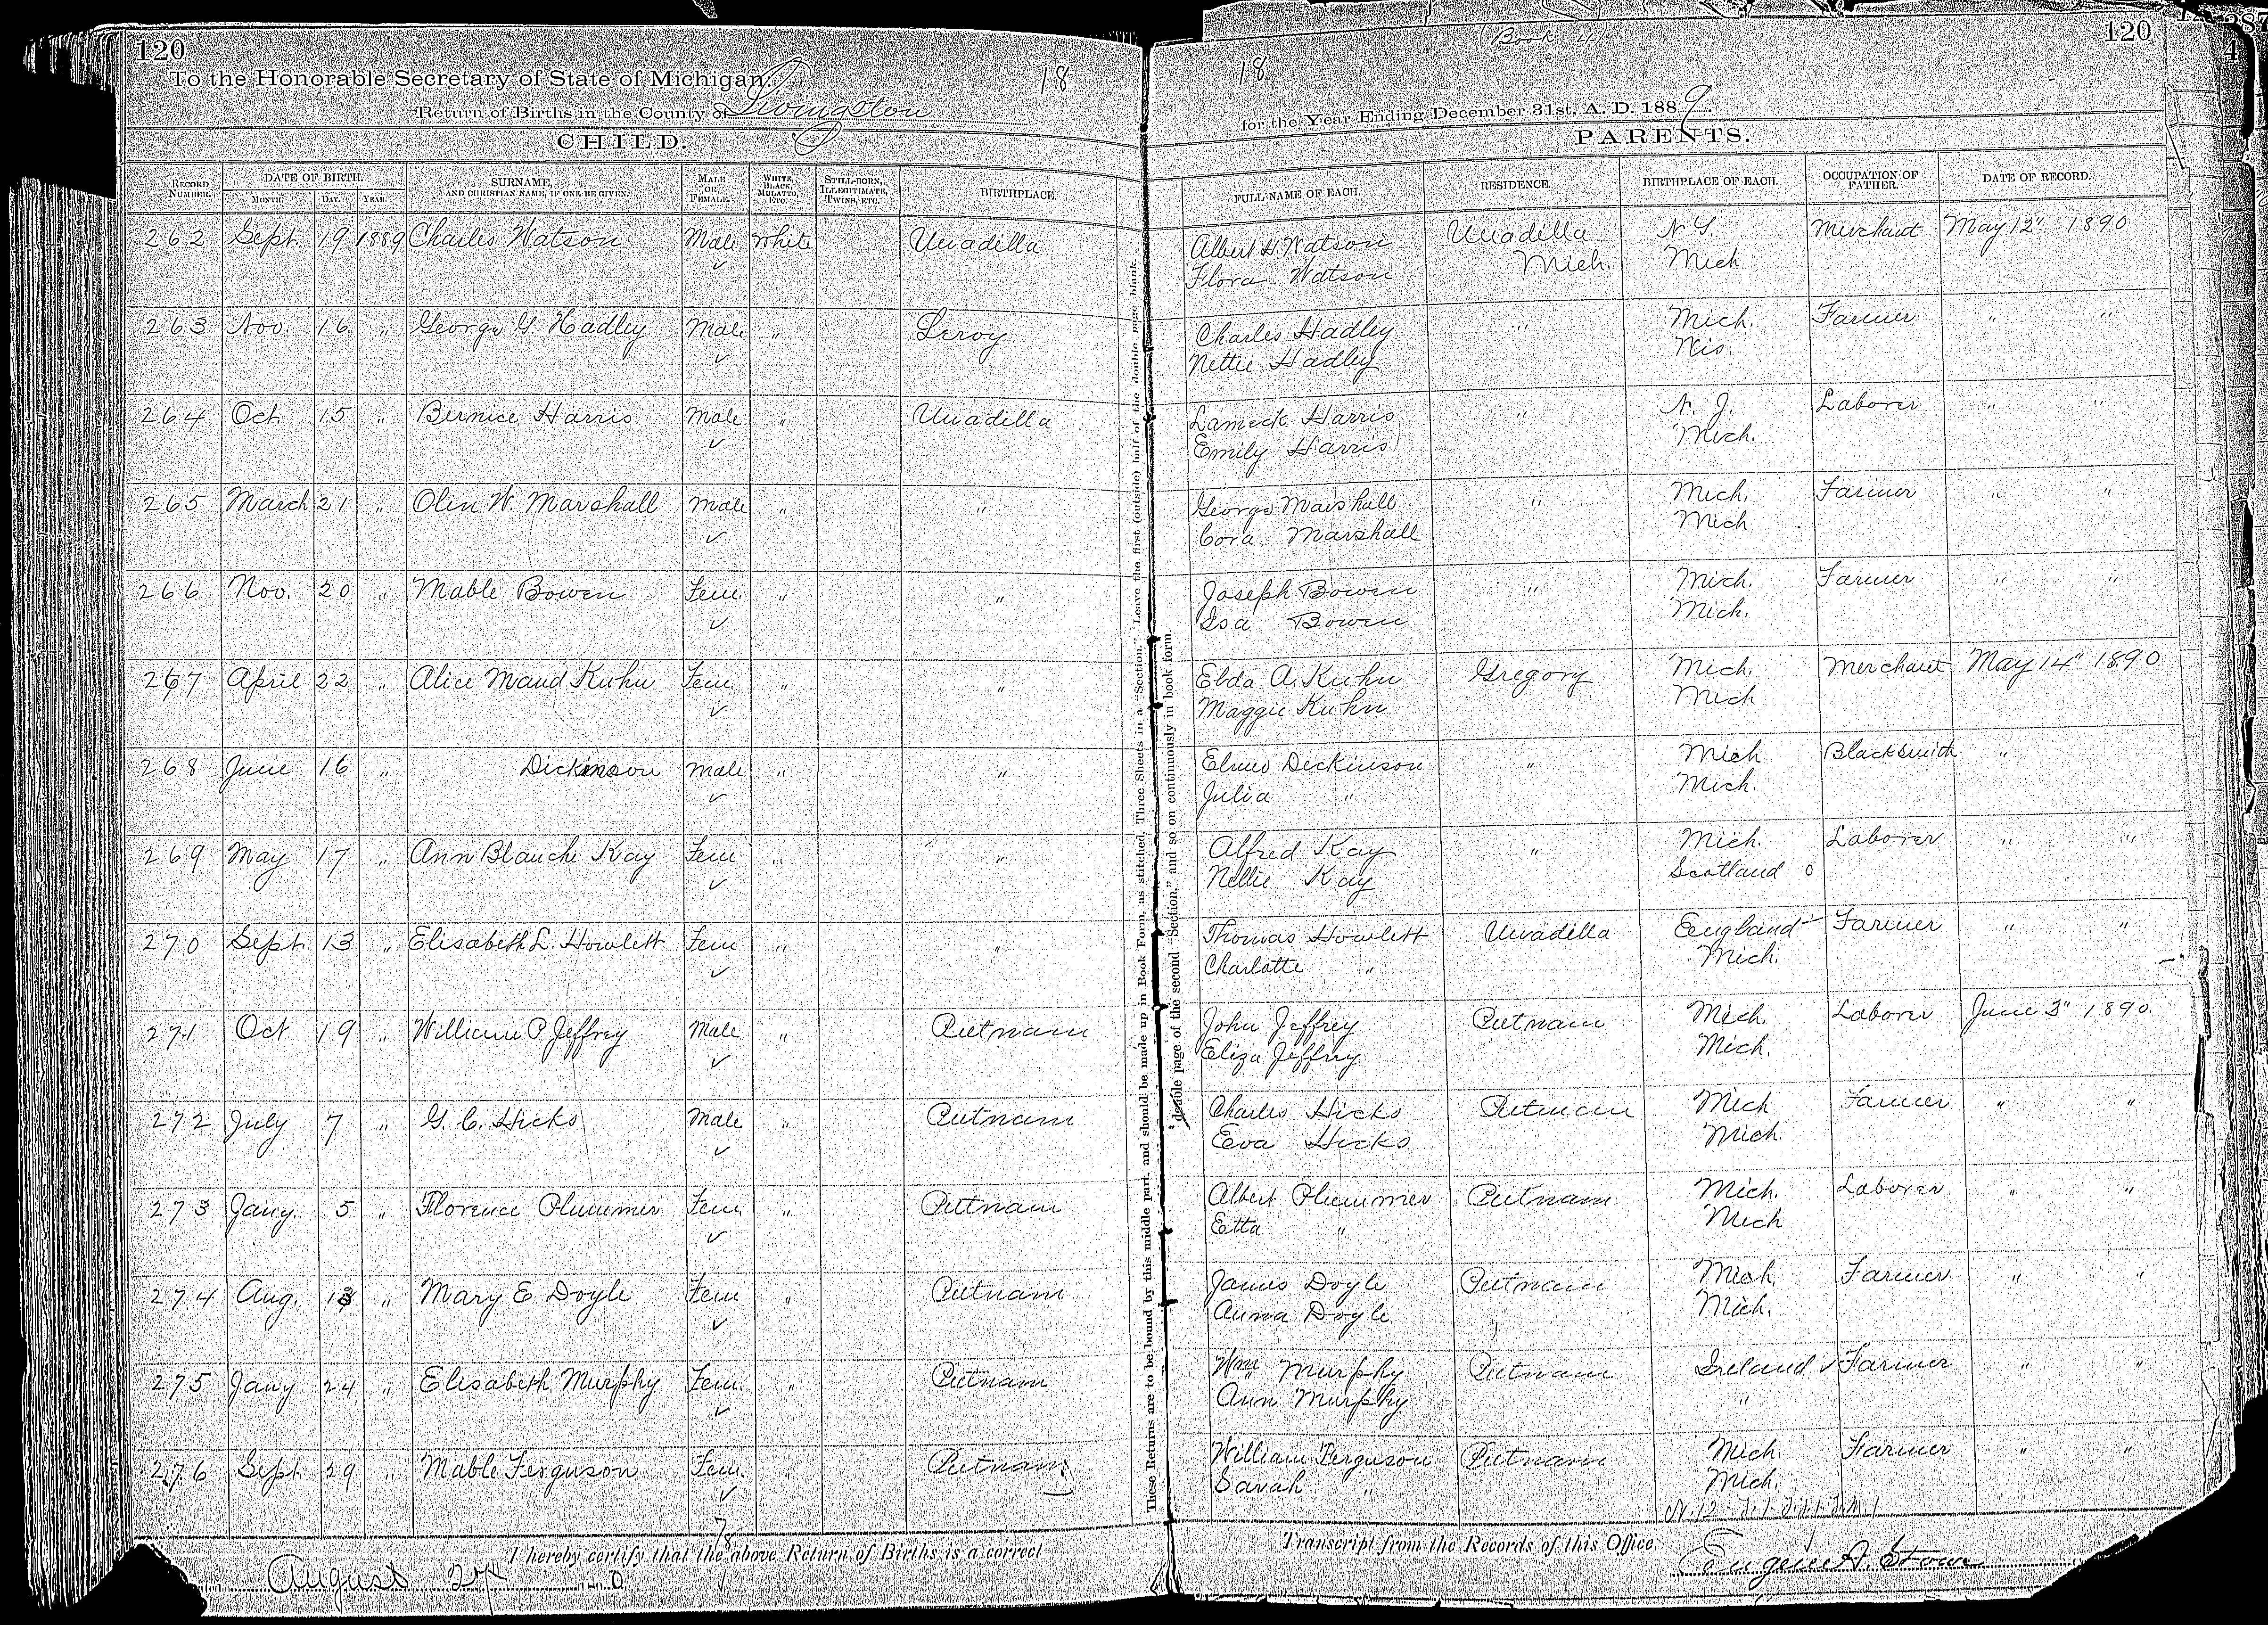 120
To the Honorable Secretary of State of Michigan:
18
Return of Births in the County of Livingston
CHILD.
RECORD NUMBER.
DATE OF BIRTH.
MONTH. DAY. YEAR.
SURNAME, AND CHRISTIAN NAME, IF ONE BE GIVEN.
MALE OR FEMALE.
WHITE, BLACK, MULATTO, ETC.
STILL-BORN, ILLEGITIMATE, TWINS, ETC.
BIRTHPLACE.
262 Sept. 19 1889 Charles Watson Male White Unadilla
✓
263 Nov. 16 " George G. Hadley Male " Leroy
✓
264 Oct. 15 " Bernice Harris Male " Unadilla
✓
265 March 21 " Olin W. Marshall Male " "
✓
266 Nov. 20 " Mable Bowen Fem. " "
✓
267 April 22 " Alice Maud Kuhn Fem. " "
✓
268 June 16 " Dickinson Male " "
✓
269 May 17 " Ann Blanche Kay Fem " "
✓
270 Sept. 13 " Elisabeth L. Howlett Fem " "
✓
271 Oct 19 " William P Jeffrey Male " Putnam
✓
272 July 7 " G. C. Hicks Male " Putnam
✓
273 Jany. 5 " Florence Plummer Fem " Putnam
✓
274 Aug. 13 " Mary E Doyle Fem " Putnam
✓
275 Jany 24 " Elisabeth Murphy Fem. " Putnam
✓
276 Sept. 29 " Mable Ferguson Fem. " Putnam
✓
I hereby certify that the above Return of Births is a correct
August 27
These Returns are to be bound by this middle part, and should be made up in Book Form, as stitched, Three Sheets in a "Section." Leave the first (outside) half of the double page blank.
double page of the second "Section," and so on continuously in book form.
(Book 4)
120
18
for the Year Ending December 31st, A. D. 1889.
PARENTS.
FULL NAME OF EACH. RESIDENCE. BIRTHPLACE OF EACH. OCCUPATION OF FATHER. DATE OF RECORD.
Albert H. Watson Unadilla N Y. Merchant May 12" 1890
Flora Watson Mich. Mich
Charles Hadley " Mich. Farmer " "
Nettie Hadley Wis.
Lameck Harris " N. J. Laborer " "
Emily Harris Mich.
George Marshall " Mich. Farmer " "
Cora Marshall Mich
Joseph Bowen " Mich. Farmer " "
Isa Bowen Mich.
Elda A. Kuhn Gregory Mich. Merchant May 14" 1890
Maggie Kuhn Mich
Elmo Dickinson " Mich Blacksmith "
Julia " Mich.
Alfred Kay " Mich. Laborer " "
Nellie Kay Scotland
Thomas Howlett Unadilla England Farmer " "
Charlotte " Mich.
John Jeffrey Putnam Mich. Laborer June 3" 1890.
Eliza Jeffrey Mich.
Charles Hicks Putnam Mich Farmer " "
Eva Hicks Mich.
Albert Plummer Putnam Mich. Laborer " "
Etta " Mich
James Doyle Putnam Mich. Farmer " "
Anna Doyle Mich.
Wm Murphy Putnam Ireland ✓ Farmer " "
Ann Murphy "
William Ferguson Putnam Mich. Farmer " "
Sarah " Mich.
Transcript from the Records of this Office.
Eugene A. Stowe